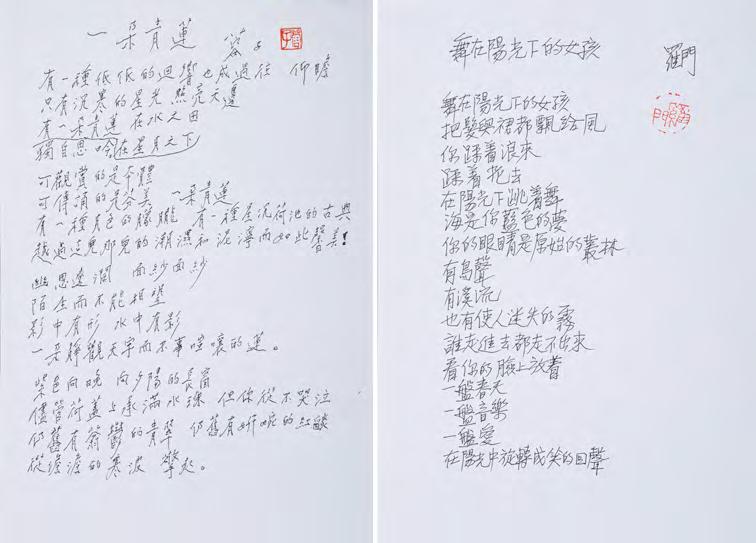 一朵青蓮
蓉子
有一種低低的迴響也成過往 仰瞻
只有沉寒的星光 照亮天邊
有一朵青蓮 在水之田
獨自思吟在星月之下
可觀賞的是本體
可傳頌的是芬美 一朵青蓮
有一種月色的朦朧 有一種星沉荷池的古典
越過這兒那兒的潮濕和泥濘而如此馨美!
幽思遼闊 面紗面紗
陌生而不能相望
影中有形 水中有影
一朵靜觀天宇而不事喧嚷的蓮。
紫色向晚 向夕陽的長窗
儘管荷蓋上承滿水珠 但你從不哭泣
仍舊有蓊鬱的青翠 仍舊有妍婉的紅燄
從澹澹的寒波 擎起。
舞在陽光下的女孩
羅門
舞在陽光下的女孩
把髮與裙都飄給風
你踩着浪來
踩着花去
在陽光下跳着舞
海是你藍色的夢
你的眼睛是原始的叢林
有鳥聲
有溪流
也有使人迷失的霧
誰走進去都走不出來
看你的臉上放着
一盤春天
一盤音樂
一盤愛
在陽光中旋轉成笑的回聲